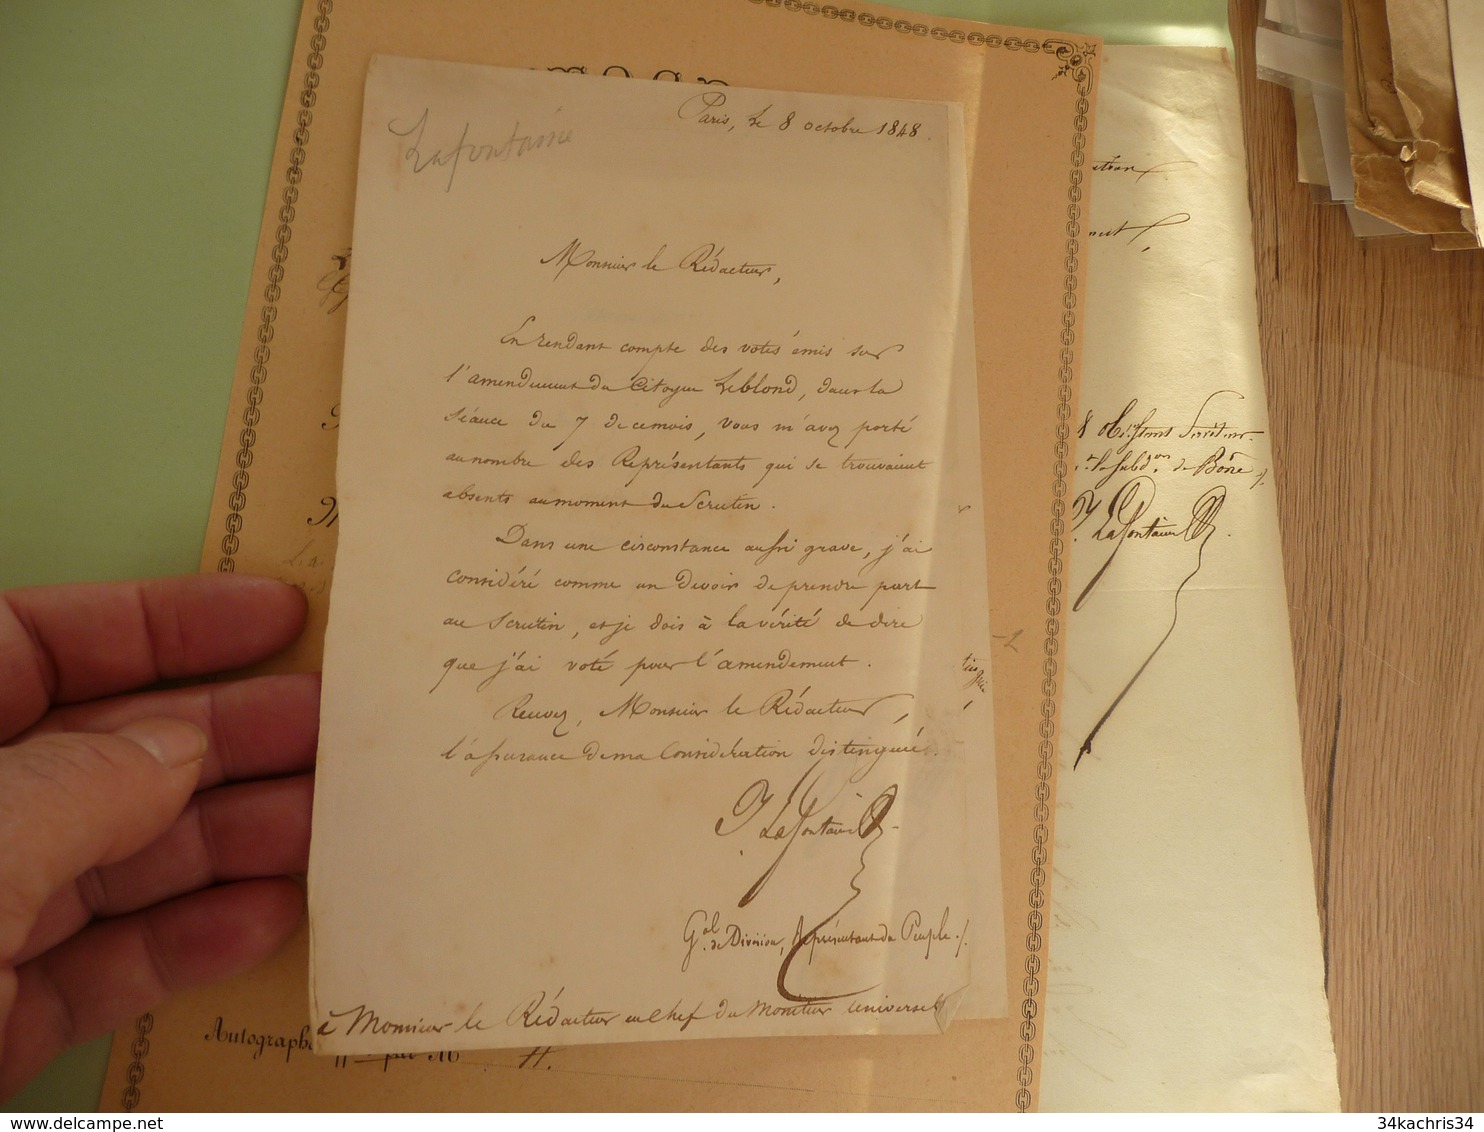 Lafontaine
Paris, le 8 octobre 1848.
Monsieur le Rédacteur,
En rendant compte des votes émis sur
l'amendement du Citoyen Leblond, dans la
séance du 7 de ce mois, vous m'avez porté
au nombre des Représentants qui se trouvaient
absents au moment du Scrutin.
Dans une circonstance aussi grave, j'ai
considéré comme un devoir de prendre part
au Scrutin, et je dois à la vérité de dire
que j'ai voté pour l'amendement.
Recevez, Monsieur le Rédacteur,
l'assurance de ma Considération distinguée.
J. Lafontaine
Gal. de Division, Représentant du Peuple./.
à Monsieur le Rédacteur en Chef du Moniteur Universel
de Bône
J. Lafontaine
Autograph
34kachris34